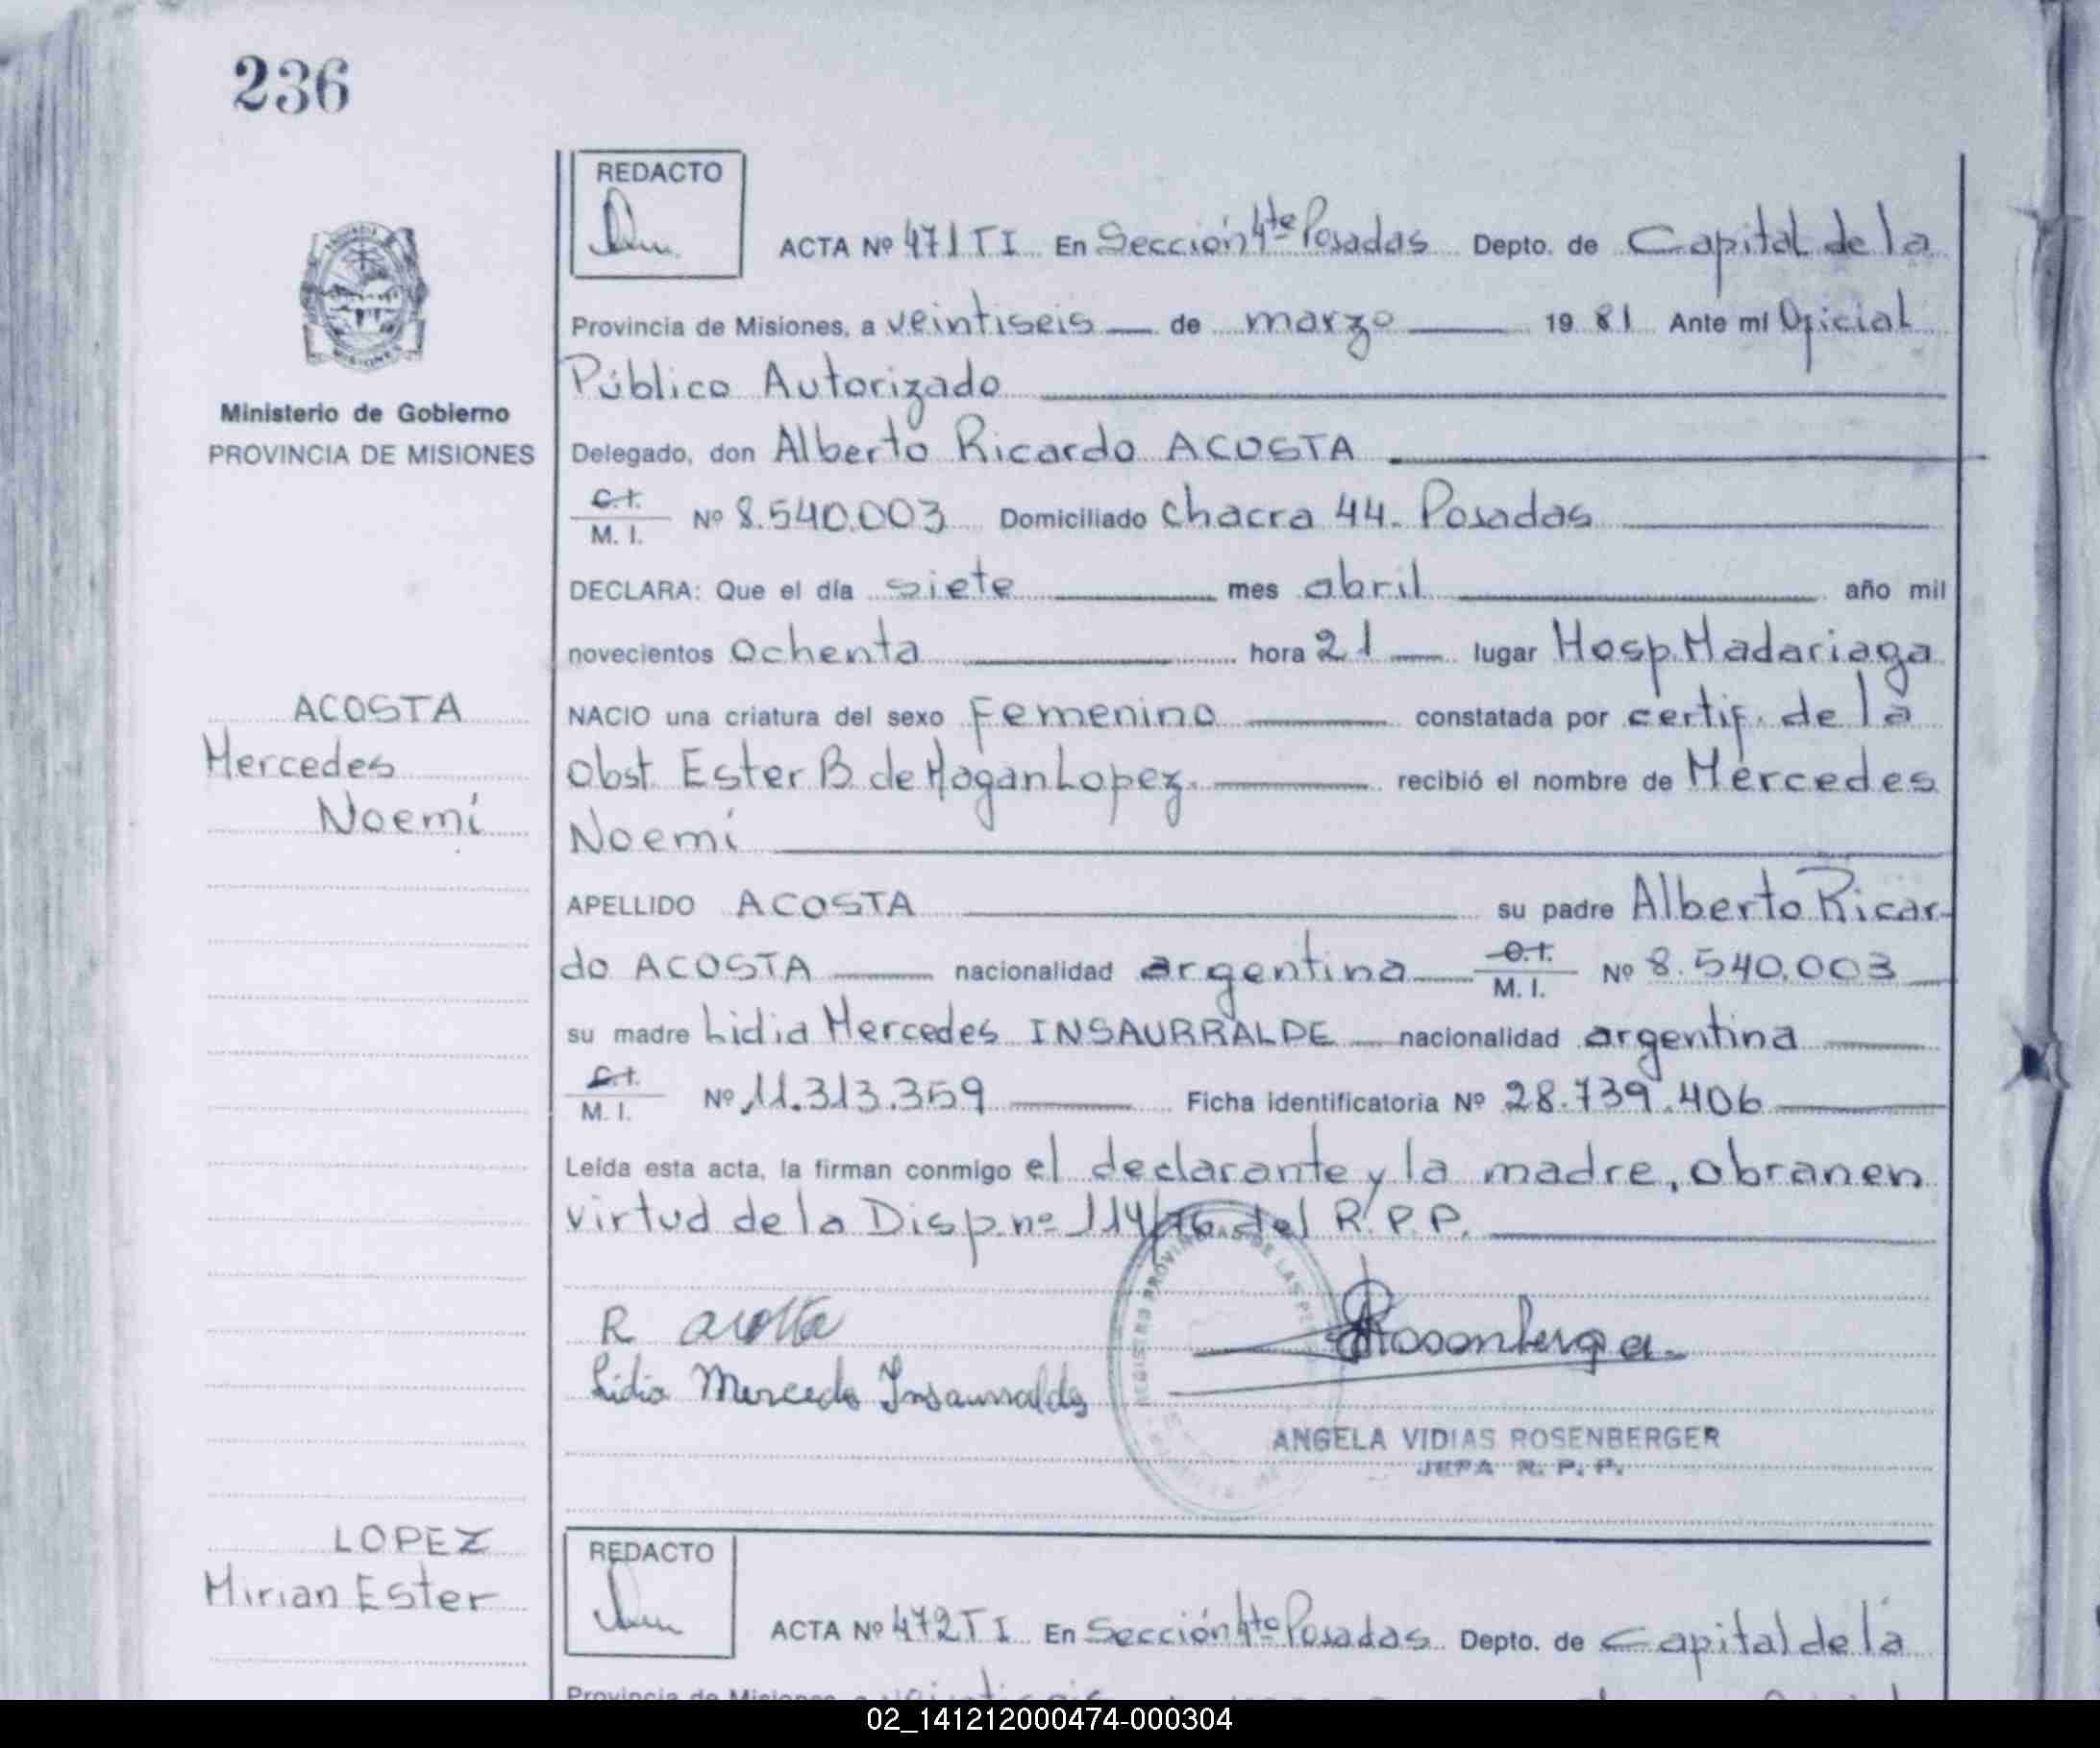 236
REDACTO
ACTA Nº 471 T I En Sección 4ta Posadas Depto. de Capital de la
Provincia de Misiones, a veintiseis de marzo 19 81 Ante mi Oficial
Público Autorizado
Ministerio de Gobierno
PROVINCIA DE MISIONES
Delegado, don Alberto Ricardo ACOSTA
C.I.
M. I. Nº 8.540.003 Domiciliado chacra 44. Posadas
DECLARA: Que el día siete mes abril año mil
novecientos ochenta hora 21 lugar Hosp. Madariaga
ACOSTA
Mercedes
Noemí
NACIO una criatura del sexo Femenino constatada por certif. de la
Obst. Ester B. de Lopez. recibió el nombre de Mercedes
Noemí
APELLIDO ACOSTA su padre Alberto Ricar-
do ACOSTA nacionalidad argentina C.I.
M. I. Nº 8.540.003
su madre Lidia Mercedes INSAURRALDE nacionalidad argentina
C.I.
M. I. Nº 11.313.359 Ficha identificatoria Nº 28.739.406
Leída esta acta, la firman conmigo el declarante y la madre, obran en
virtud de la Disp. nº 114/76 del R.P.P.
R acosta
Lidia Mercedes Insaurralde
REGISTRO PROVINCIAL DE LAS
ANGELA VIDIAS ROSENBERGER
JEFA R. P. P.
LOPEZ
Mirian Ester
REDACTO
ACTA Nº 472 T I En Sección 4ta Posadas Depto. de Capital de la
Provincia de Misiones, a veintiseis
02_141212000474-000304